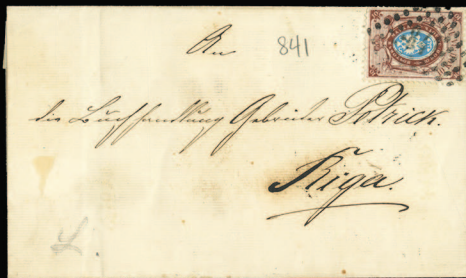 An
841
die Buchhandlung Gebrüder Petrick.
Riga.